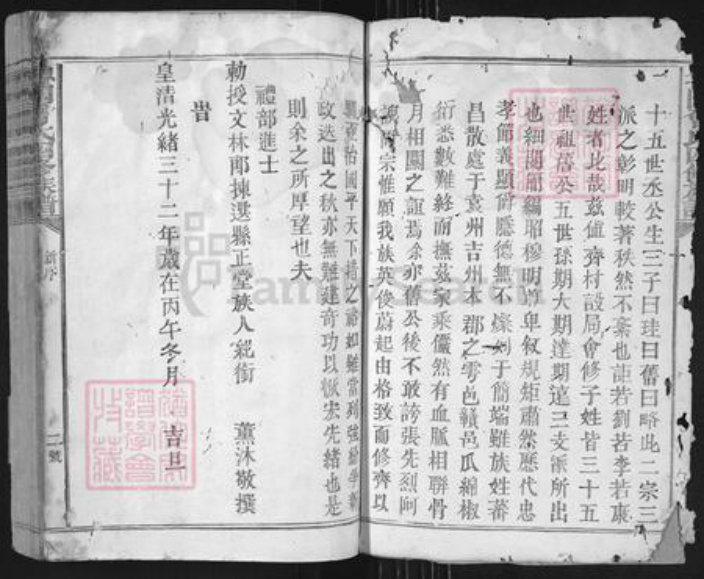 十五世丞公生三子曰珪曰舊曰略此二宗三
派之彰明較著秩然不紊也詎若劉若李若康
姓者比哉茲値齊村設局會修子姓皆三十五
世祖舊公五世孫期大期達期逹三支派所出
也細閱所編昭穆明尊卑叙規矩肅然歷代忠
孝節義顯爵隱德無不燦列于簡端雖族姓蕃
昌散處于袁州吉州本郡之雩邑贛邑瓜綿椒
衍悉數難終而撫茲家乘儼然有血脈相聯骨
月相關之誼焉余亦舊公後不敢誇張先烈阿
親同宗惟願我族英俊蔚起由格致而修齊以
治國平天下措之裕如雖當列強
政迭出之秋亦無難建奇功以振宏先緒也是
則余之所厚望也夫
禮部進士
勅授文林郎揀選縣正堂族人衮銜 薰沐敬撰
皇淸光緒三十二年歲在丙午冬月 吉旦
新序
二號
FamilySearch